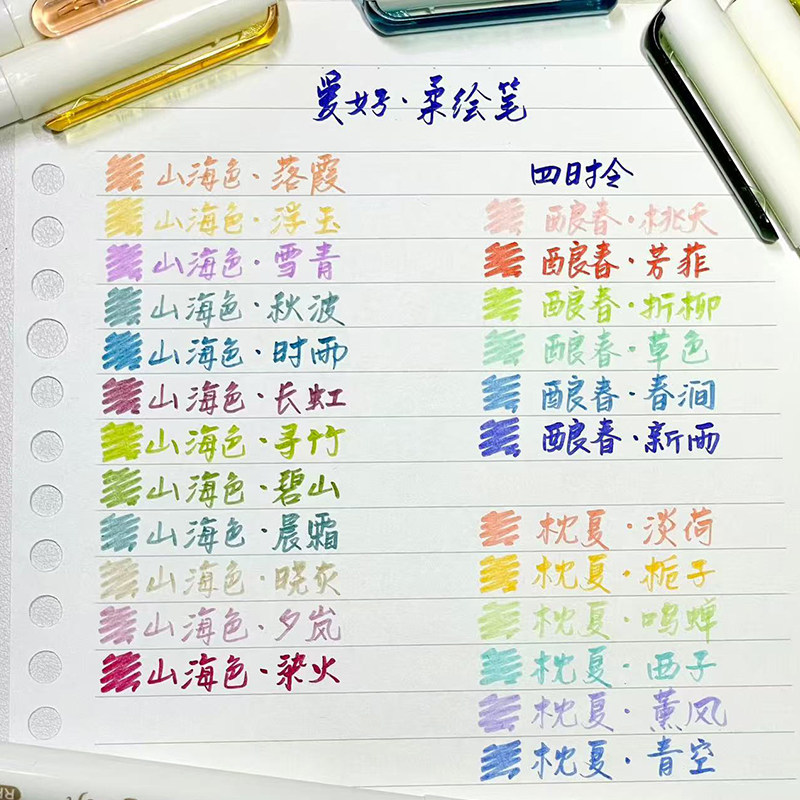 爱好·柔绘笔
山海色·落霞
山海色·浮玉
山海色·雪青
山海色·秋波
山海色·时雨
山海色·长虹
山海色·寻竹
山海色·碧山
山海色·晨霜
山海色·晓灰
山海色·夕岚
山海色·染火
四时令
酿春·桃夭
酿春·芳菲
酿春·折柳
酿春·草色
酿春·春涧
酿春·新雨
枕夏·淡荷
枕夏·栀子
枕夏·鸣蝉
枕夏·西子
枕夏·薰风
枕夏·青空